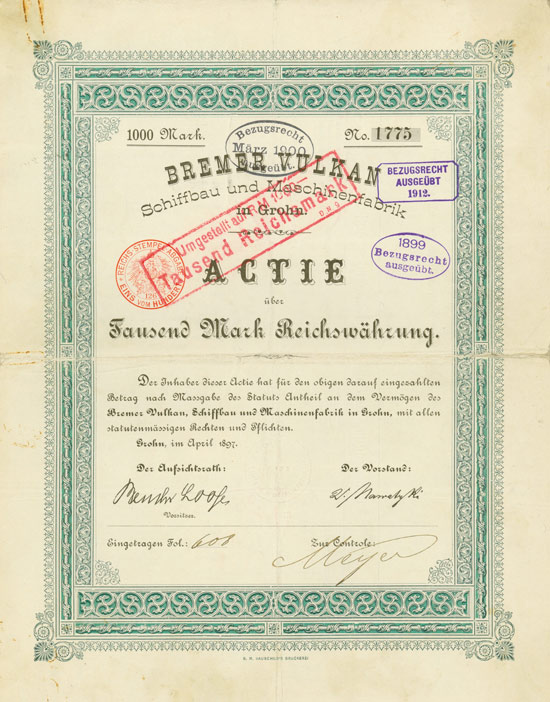 1000 Mark.
No. 1775
Bezugsrecht
März 1900
ausgeübt.
BREMER VULKAN
Schiffbau und Maschinenfabrik
in Grohn.
BEZUGSRECHT
AUSGEÜBT
1912.
Umgestellt auf RM 1000.—
Tausend Reichsmark
1899
Bezugsrecht
ausgeübt.
REICHS STEMPEL ABGABE
EINS VOM HUNDERT
ACTIE
über
Tausend Mark Reichswährung.
Der Inhaber dieser Actie hat für den obigen darauf eingezahlten
Betrag nach Massgabe des Statuts Antheil an dem Vermögen des
Bremer Vulkan, Schiffbau und Maschinenfabrik in Grohn, mit allen
statutenmässigen Rechten und Pflichten.
Grohn, im April 1897.
Der Aufsichtsrath:
Der Vorstand:
Vorsitzer.
Eingetragen Fol.: 608
Zur Controle:
Meyer